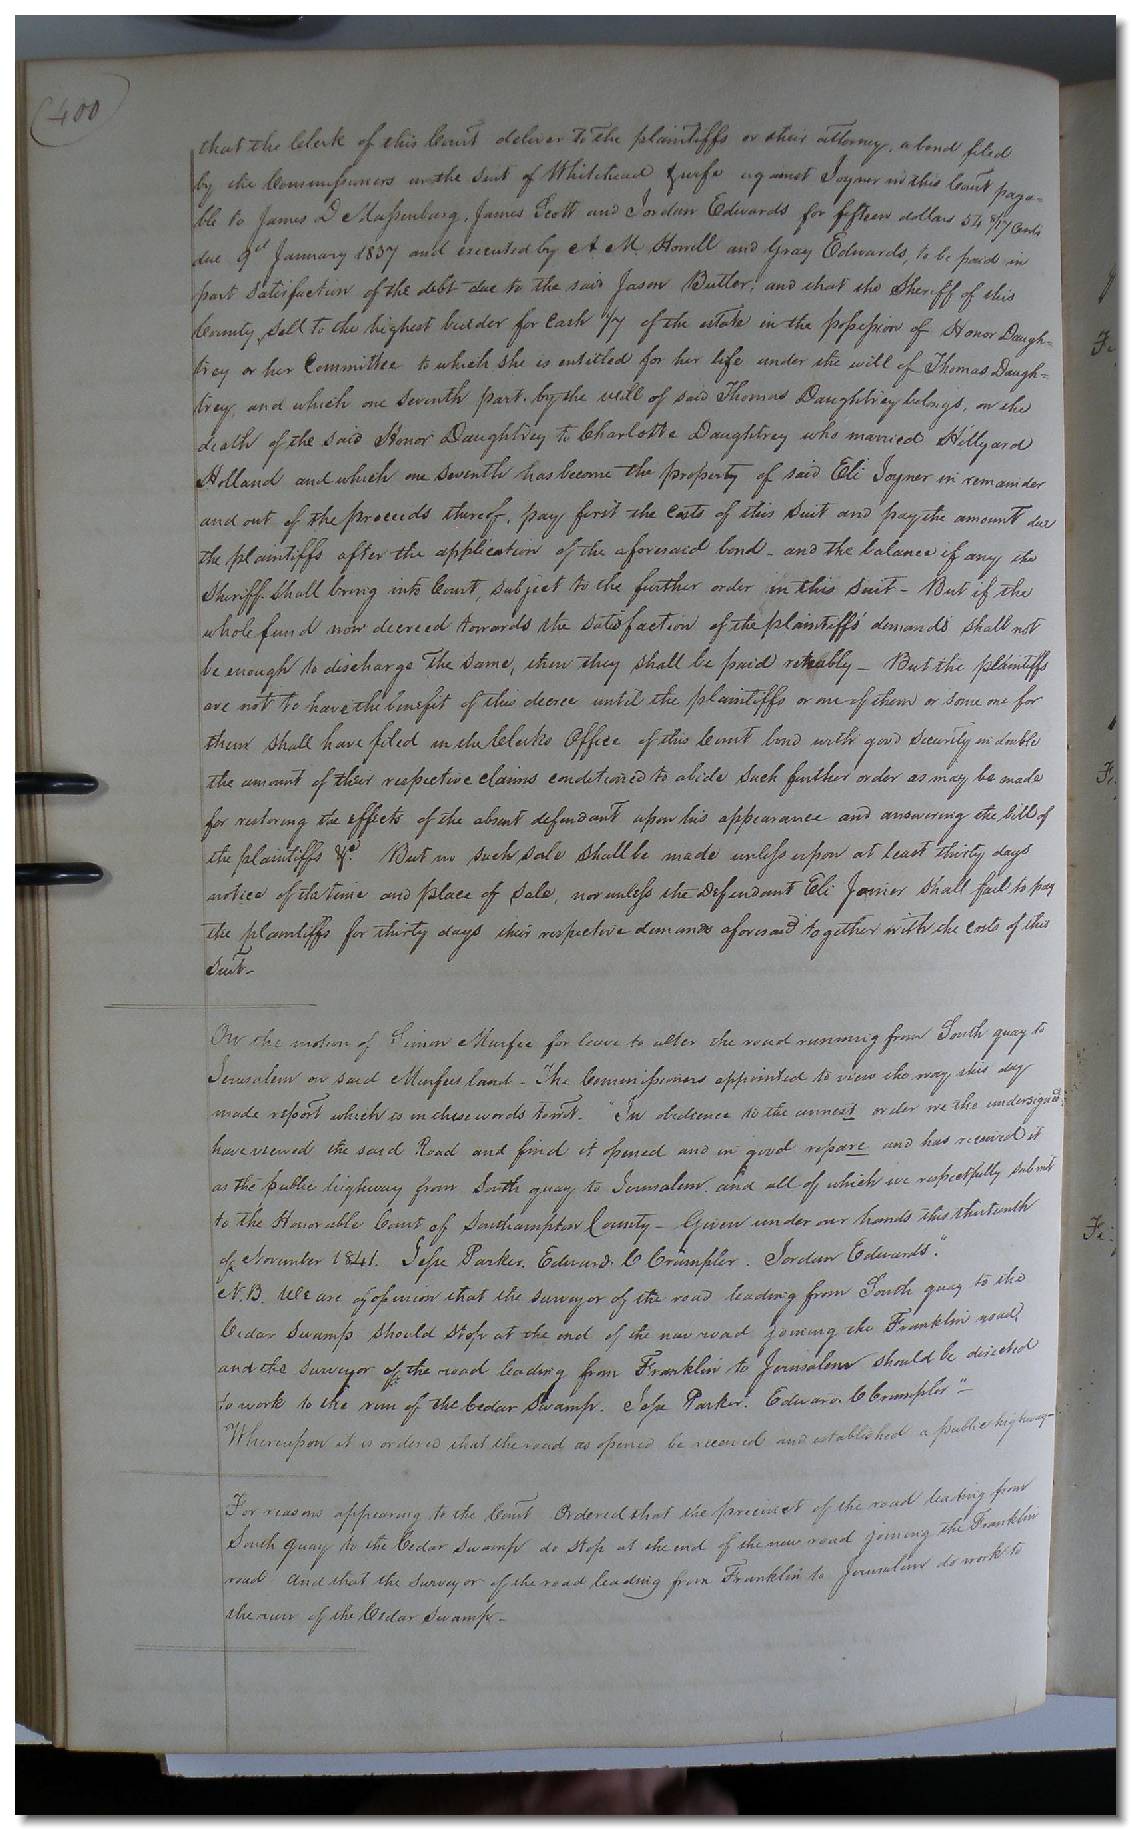 (400)
that the Clerk of this Court deliver to the plaintiffs or their attorney, a bond filed
by the Commissioners in the suit of Whitehead & wife against Joyner in this Court paya=
ble to James D Massenburg, James Scott and Jordan Edwards for fifteen dollars 54 Cents
due 9th January 1837 and executed by A. M. Howell and Gray Edwards, to be paid in
part satisfaction of the debt due to the said Jason Butler; and that the Sheriff of this
County, sell to the highest bidder for Cash 1/7 of the estate in the possession of Honor Daugh=
trey or her Committee to which she is entitled for her life under the will of Thomas Daugh=
trey, and which one seventh part, by the will of said Thomas Daughtrey belongs, on the
death of the said Honor Daughtrey to Charlotte Daughtrey who married Hillyard
Holland and which one seventh has become the property of said Eli Joyner in remainder
and out of the proceeds thereof, pay first the Costs of this suit and pay the amount due
the plaintiffs after the application of the aforesaid bond - and the balance if any the
Sheriff shall bring into Court, subject to the further order in this suit - But if the
whole fund now decreed towards the satisfaction of the plaintiffs' demands shall not
be enough to discharge the same, then they shall be paid rateably - But the plaintiffs
are not to have the benefit of this decree until the plaintiffs or one of them or some one for
them shall have filed in the Clerks Office of this Court bond with good security in double
the amount of their respective claims conditioned to abide such further order as may be made
for restoring the effects of the absent defendant upon his appearance and answering the bill of
the plaintiffs &c. But no such sale shall be made unless upon at least thirty days
notice of the time and place of sale, nor unless the Defendant Eli Joiner shall fail to pay
the plaintiffs for thirty days their respective demands aforesaid together with the costs of this
suit -
On the motion of Simon Murfee for leave to alter the road running from South quay to
Jerusalem on said Murfees land - The Commissioners appointed to view the way this day
made report which is in these words towit. "In obedience to the annext order we the undersigned
have viewed the said Road and find it opened and in good repare and has received it
as the public highway from South quay to Jerusalem. and all of which we respectfully submit
to the Honorable Court of Southampton County - Given under our hands this thirteenth
of November 1841. Jesse Parker. Edward. C Crumpler. Jordan Edwards".
N.B. We are of opinion that the surveyor of the road leading from South quay to the
Cedar Swamp should stop at the end of the new road joining the Franklin road,
and the surveyor of the road leading from Franklin to Jerusalem should be directed
to work to the run of the Cedar Swamp. Jesse Parker. Edward. C Crumpler" -
Whereupon it is ordered that the road as opened be received and established a public highway -
For reasons appearing to the Court Ordered that the precinct of the road leading from
South quay to the Cedar Swamp do stop at the end of the new road joining the Franklin
road and that the surveyor of the road leading from Franklin to Jerusalem do work to
the run of the Cedar Swamp -